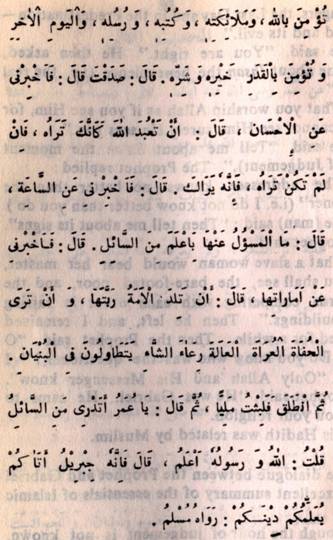 تُؤْمِنَ بِاللهِ ، وَمَلَائِكَتِهِ ، وَكُتُبِهِ ، وَرُسُلِهِ ، وَالْيَوْمِ الْآخِرِ
وَ تُؤْمِنَ بِالْقَدَرِ خَيْرِهِ وَ شَرِّهِ . قَالَ : صَدَقْتَ قَالَ : فَاَخْبِرْنِى
عَنِ الْاِحْسَانِ ، قَالَ : اَنْ تَعْبُدَ اللهَ كَاَنَّكَ تَرَاهُ ، فَاِنْ
لَمْ تَكُنْ تَرَاهُ ، فَاِنَّهُ يَرَاكَ . قَالَ : فَاَخْبِرْ نِى عَنِ السَّاعَةِ ،
قَالَ : مَا الْمَسْؤُلُ عَنْهَا بِاَعْلَمَ مِنَ السَّائِلِ . قَالَ : فَاخْبِرْنِى
عَنْ اَمَارَاتِهَا ، قَالَ : اَنْ تَلِدَ الْاَمَةُ رَبَّتَهَا ، وَ اَنْ تَرَى
الْحُفَاةَ الْعُرَاةَ الْعَالَةَ رِعَاءَ الشَّاءِ يَتَطَاوَلُونَ فِى الْبُنْيَانِ .
ثُمَّ انْطَلَقَ فَلَبِثْتُ مَلِيًّا ، ثُمَّ قَالَ : يَا عُمَرُ اَتَدْرِى مَنِ السَّائِلُ
قُلْتُ : اللهُ وَ رَسُولُهُ اَعْلَمُ ، قَالَ فَاِنَّهُ جِبْرِيْلُ اَتَا كُمْ
يُعَلِّمُكُمْ دِيْنَكُمْ : رَوَاهُ مُسْلِمُ .